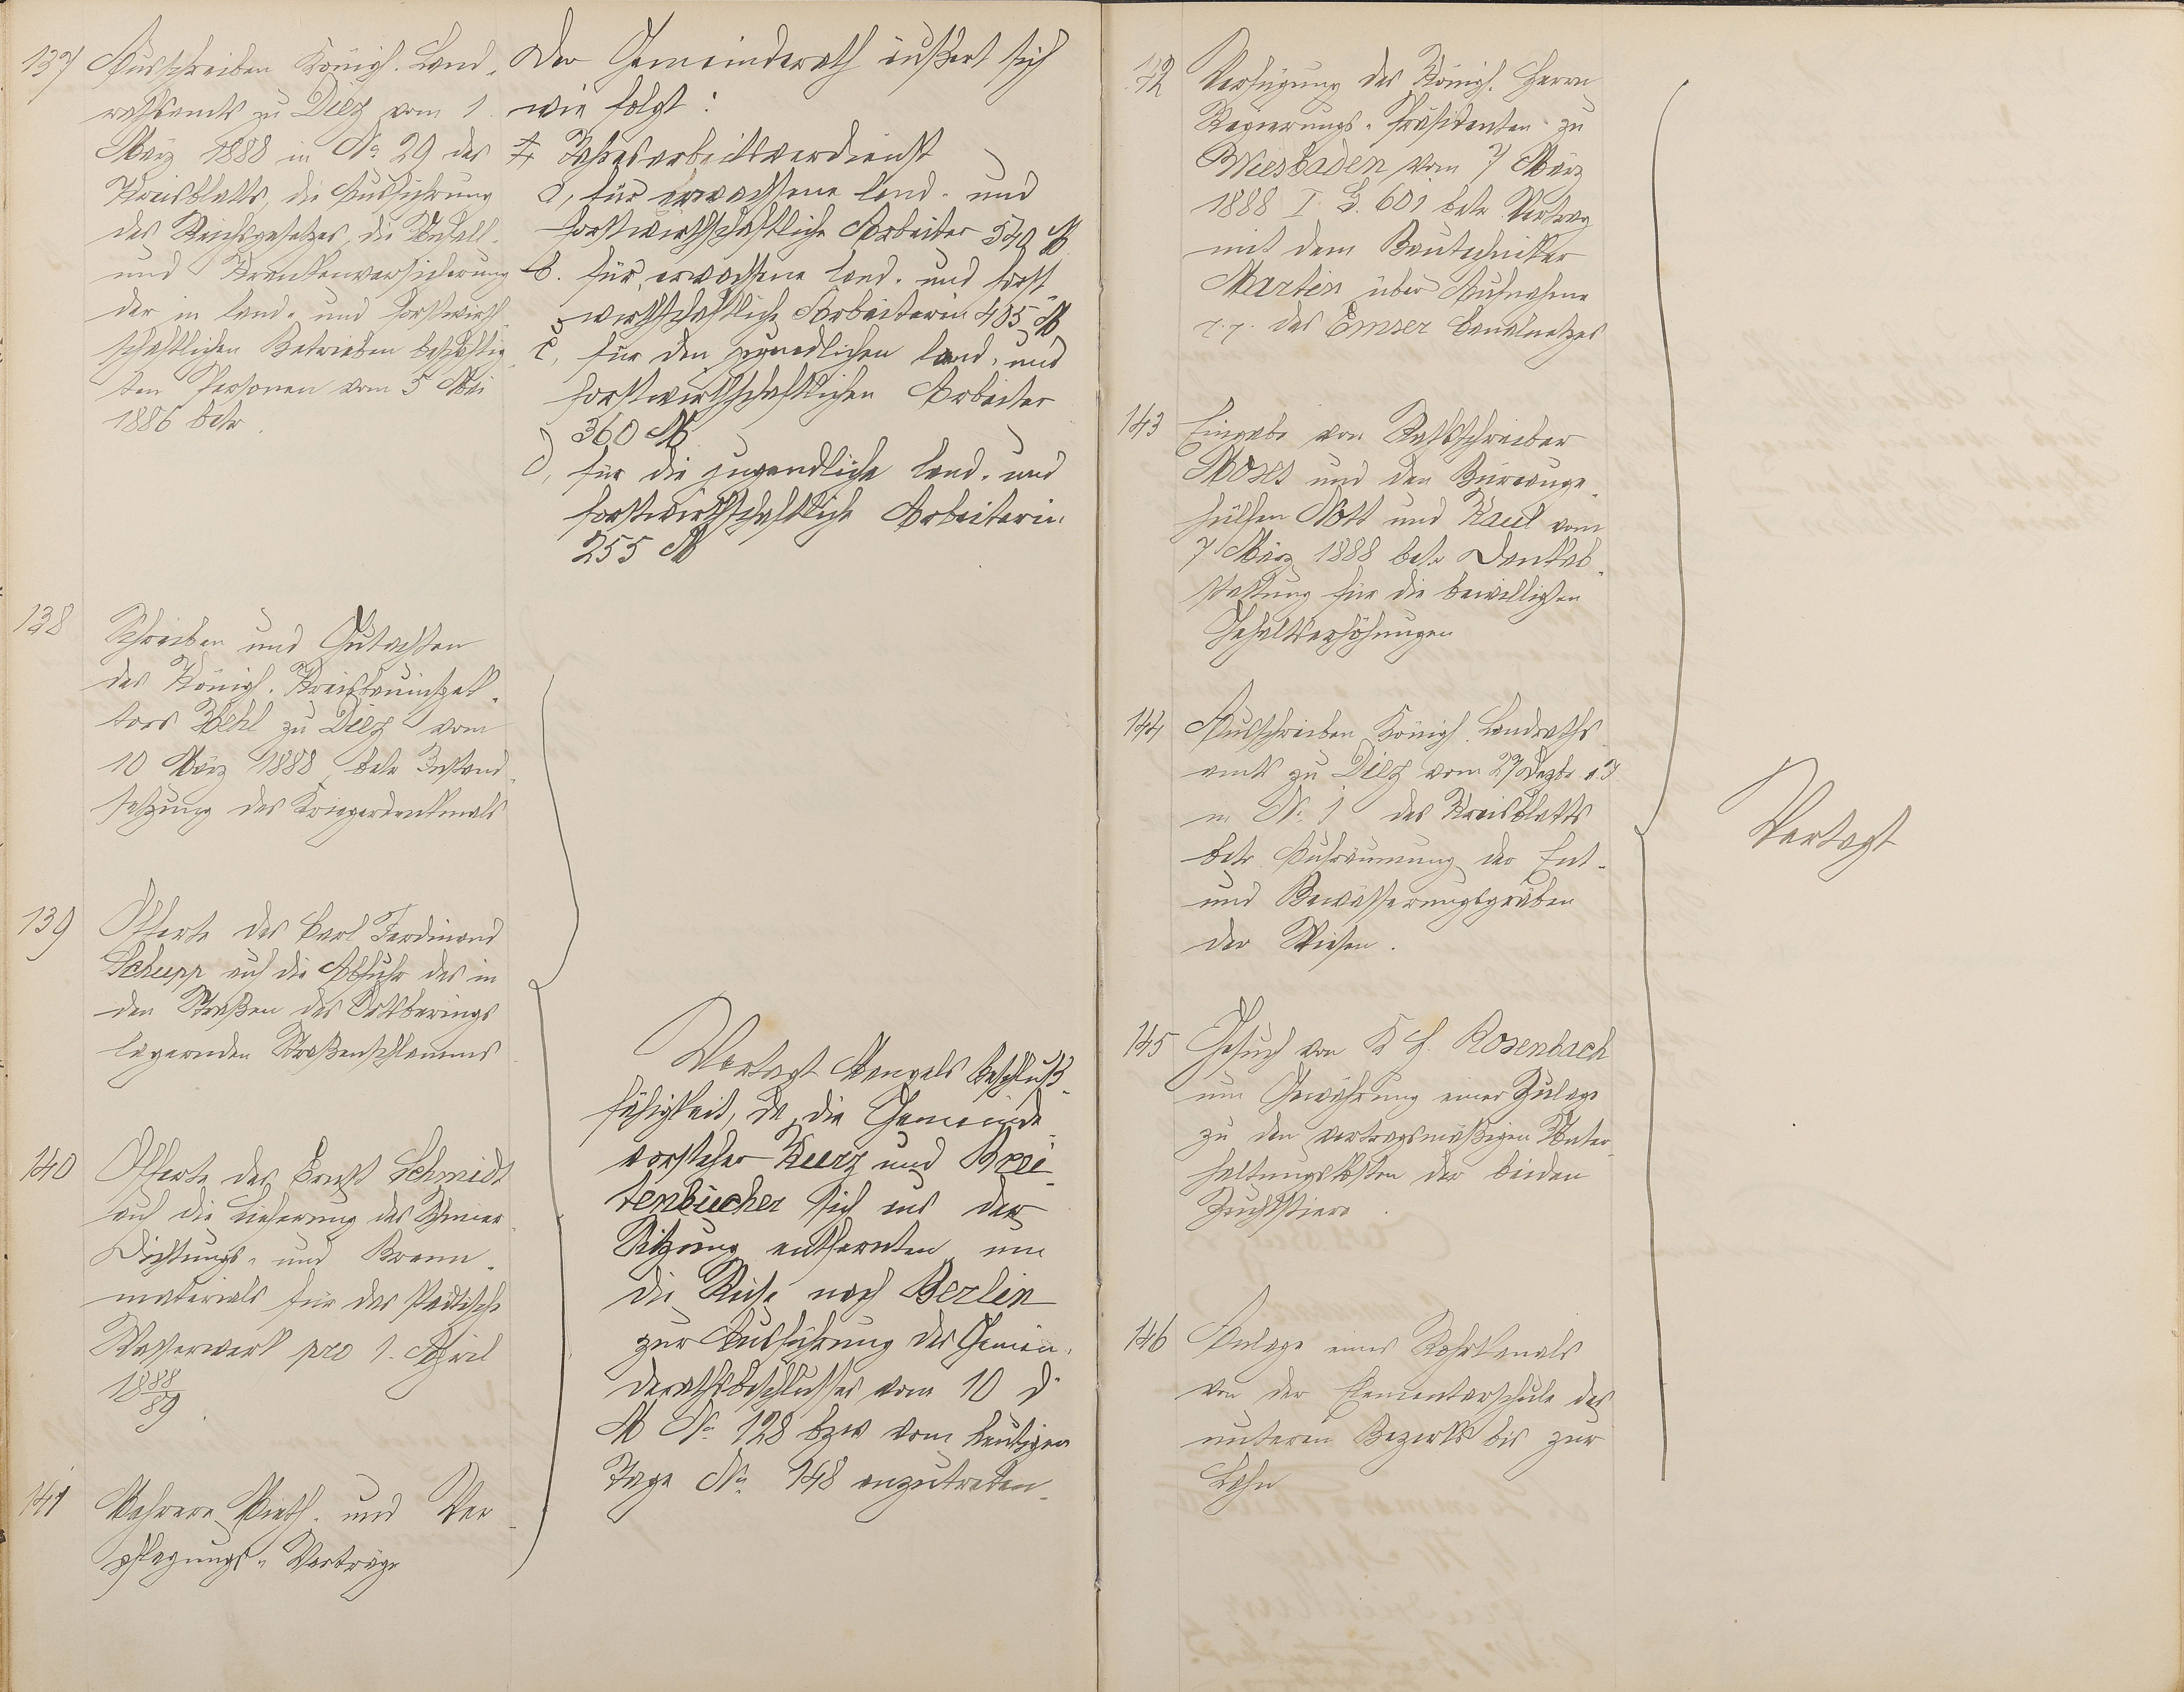 137
Ausschreiben Königl. Land-
rathsamts zu Diez vom 1.
März 1888 in No. 29 des
Kreisblatts, die Ausführung
des Reichsgesetzes, die Unfall-
und Krankenversicherung
der in land- und forstwirth-
schaftlichen Betrieben beschäftig-
ten Personen vom 5 Mai
1886 betr.
Der Gemeinderath äußert sich
wie folgt:
Jahresarbeitsverdienst
a, für erwachsene land- und
forstwirthschaftliche Arbeiter 540 M
b. für erwachsene land- und forst-
wirthschaftliche Arbeiterin 405 M
c, für den jugendlichen land- und
forstwirthschaftlichen Arbeiter
360 M
d, für die jugendliche land- und
forstwirthschaftliche Arbeiterin
255 M
138
Schreiben und Gutachten
des Königl. Kreisbauinspek-
tors Hehl zu Diez vom
10 März 1888 betr Instand-
setzung des Kriegerdenkmals
139
Offerte des Carl Ferdinand
Schupp auf die Abfuhr des in
den Straßen des Ortsberings
lagernden Straßenschlamms
140
Offerte des Ernst Schmidt
auf die Lieferung des Schmier-
Dichtungs- und Brenn-
materials für das städtische
Wasserwerk pro 1. April
1888/89
141
Mehrere Mieth- und Ver-
pflegungs-Verträge
Vertagt Mangels Beschluß-
fähigkeit, da die Gemeinde-
vorsteher Kurz und Brei-
tenbücher sich aus der
Sitzung entfernten um
die Reise nach Berlin
zur Ausführung des Gemein-
derathsbeschlusses vom 10 d
M No. 128 bzw vom heutigen
Tage No. 148 anzutreten.
142
Verfügung des Königl. Herrn
Regierungs-Präsidenten zu
Wiesbaden vom 7 März
1888 I. G. 601 betr Vertrag
mit dem Bautechniker
Martin über Aufnahme
p.p. des Emser Canalnetzes
143
Eingabe von Rathschreiber
Moses und den Büreauge-
hülfen Nott und Kaul vom
7 März 1888 betr Dankab-
stattung für die bewilligten
Gehaltserhöhungen
144
Ausschreiben Königl. Landraths-
amts zu Diez vom 27 Dezbr v J
in No. 1 des Kreisblatts
betr Aufräumung der Ent-
und Bewässerungsgräben
der Wiesen.
145
Gesuch von K H. Rosenbach
um Gewährung einer Zulage
zu den vertragsmäßigen Unter-
haltungskosten der beiden
Zuchtstiere.
146
Anlage eines Rohrkanals
von der Elementarschule des
unteren Bezirks bis zur
Lahn
Vertagt